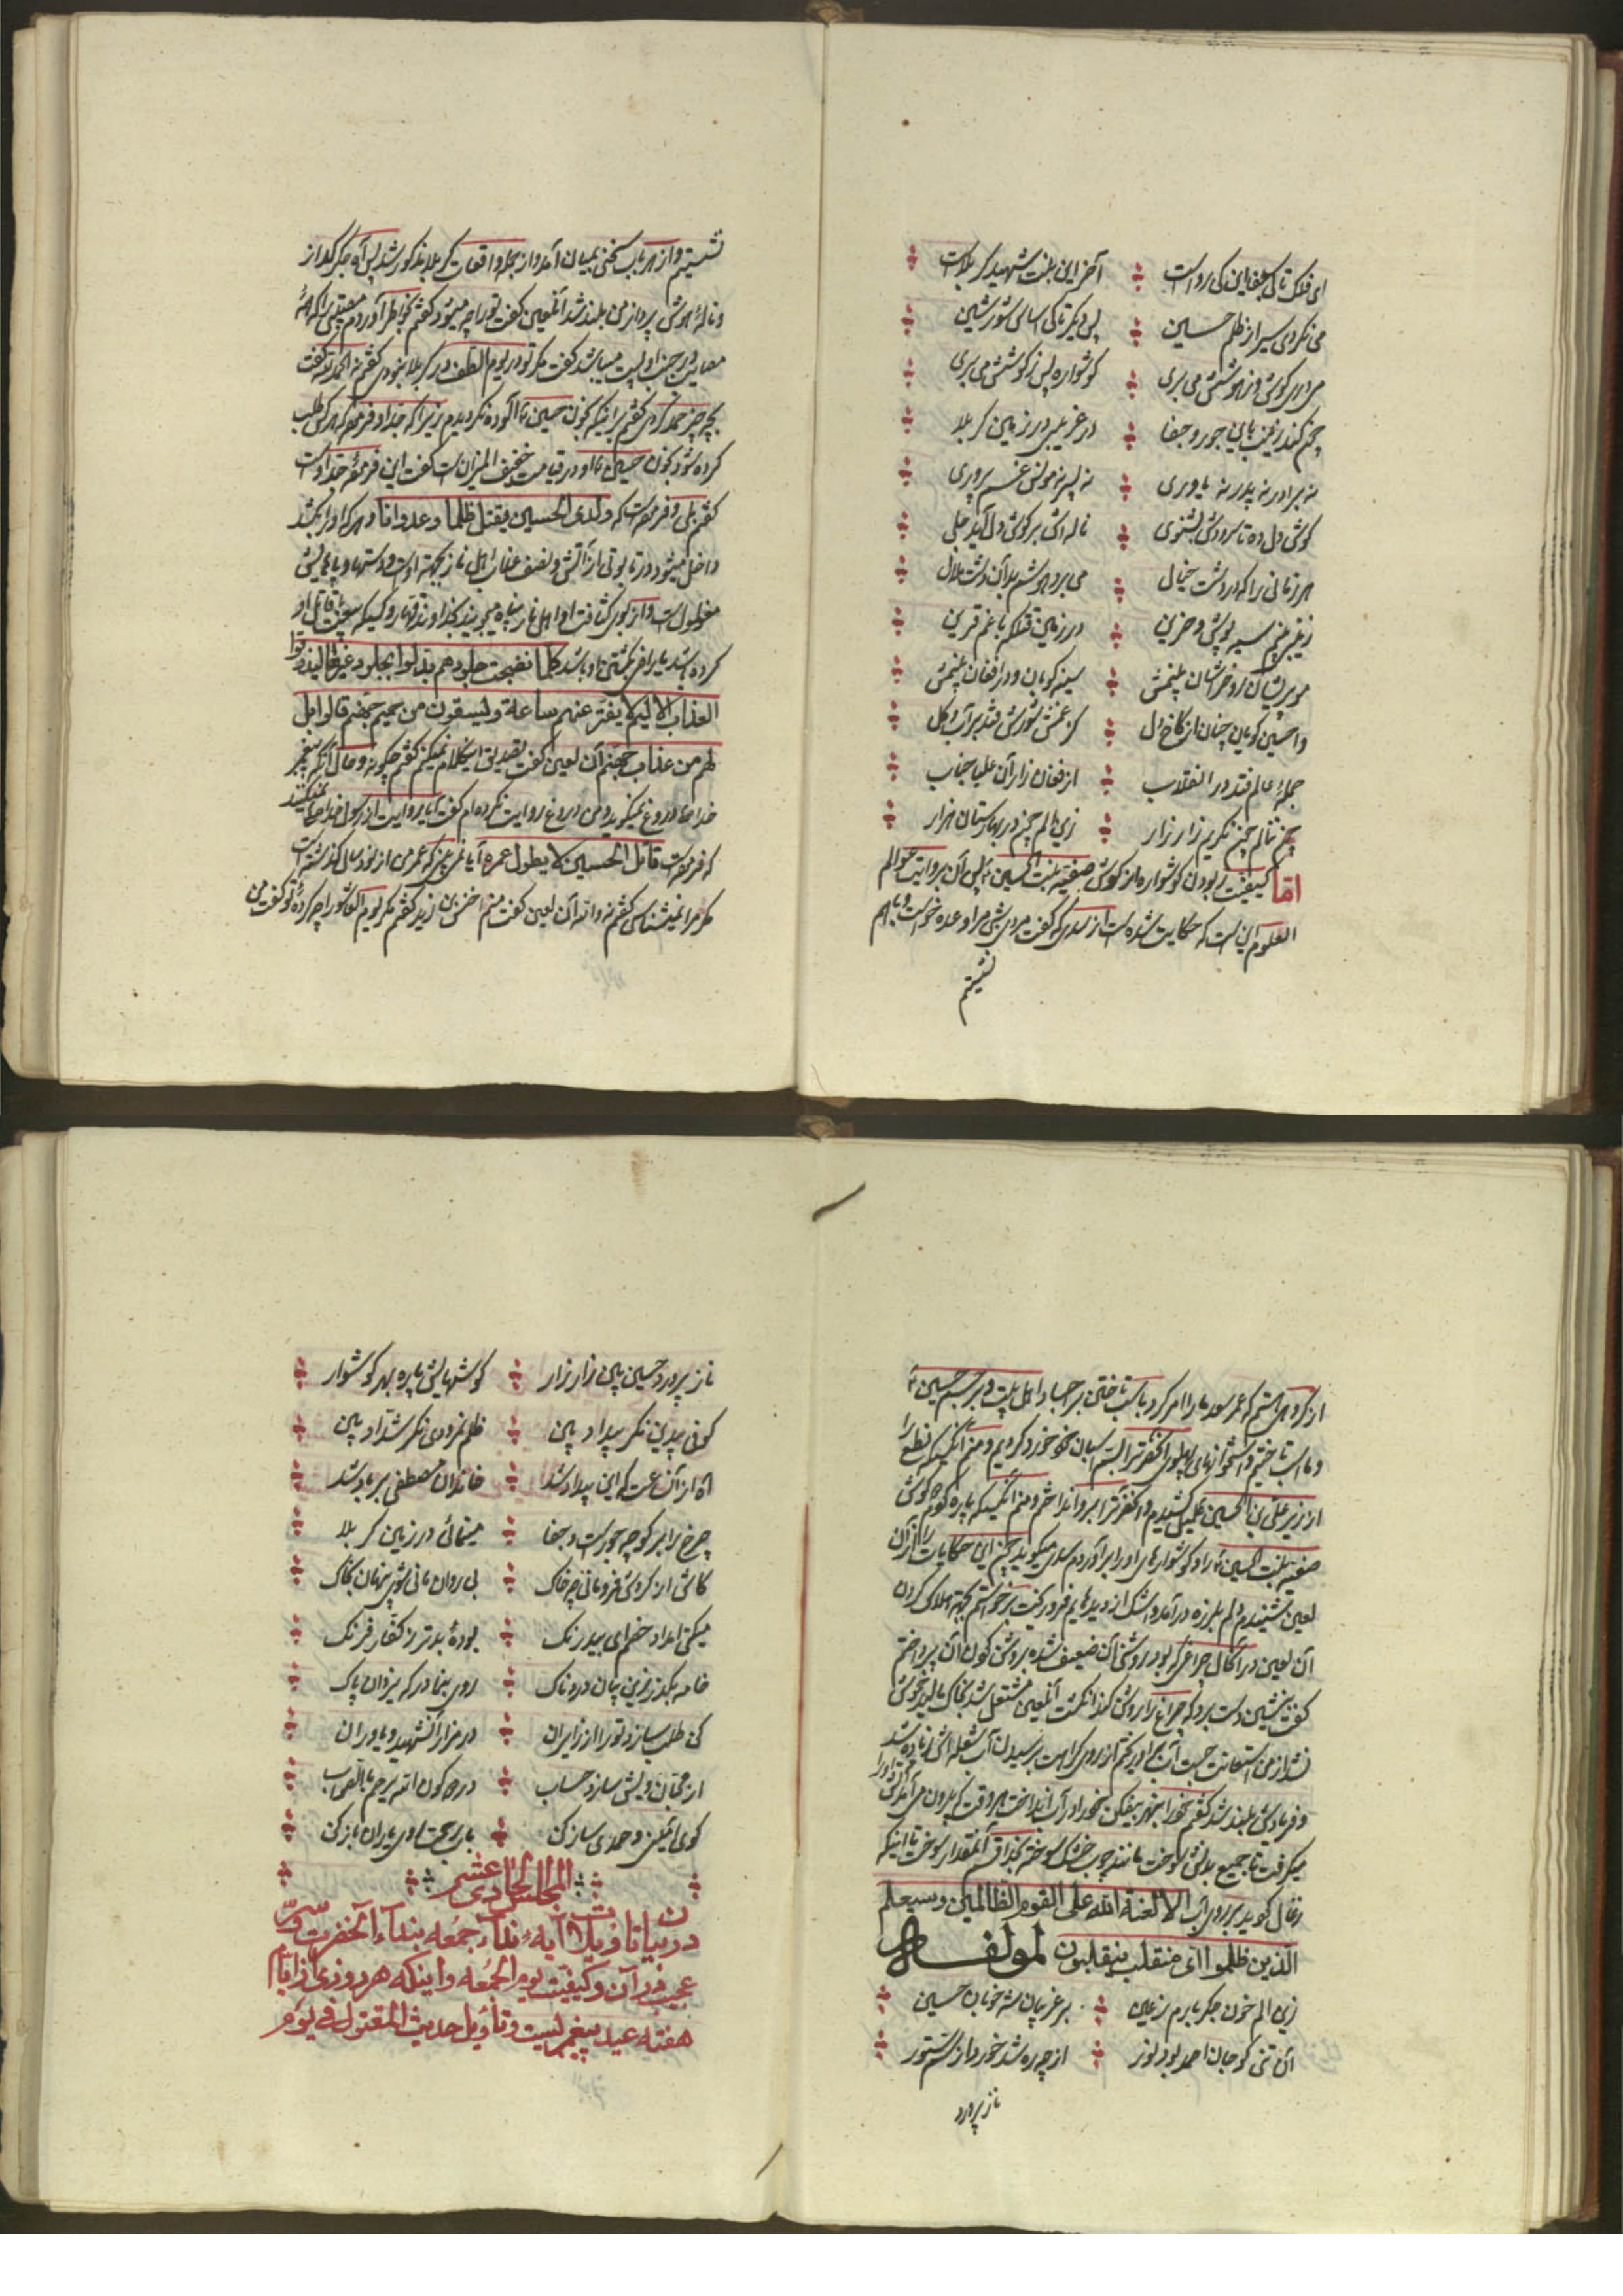 ای فلک تا کی جفا این کی رواست آخر این بنت شهید کربلاست
می نکردی سیر از ظلم حسین پس دیگر تا کی اساس شور و شین
می دری گوش و ز هوشش می بری گوشواره پس ز گوشش می بری
چون کند زینب باین جور و جفا در غریبی در زمین کربلا
نه برادر نه پدر نه یاوری نه پسر نه مونس غم پروری
گوش دل ده تا سرودش بشنوی ناله اش بر گوش دل آید جلی
هر زمانی را که در دشت خیال می برد هوشم بلا آن دشت ملال
زینبی بینم سیه پوش و حزین در زمین قتلگه با غم قرین
مو پریشان رو خراشان بینمش سینه کوبان در افغان بینمش
وا حسین گویان چنان از کاخ دل کز غمش شورش فتد بر آب و گل
جمله عالم فتد در انقلاب از فغان زار آن علیا جناب
چون ننالم چون نگریم زار زار زین الم چون در بهارستان هزار
اما کیفیت ربودن گوشواره از گوش صفیه بنت الحسین ع پس آن بروایت عوالم
العلوم این است که حکایت شده است از سدی که گفت مردی شبی مرا وعده خواست و باهم
نشستیم
نشستیم و از هر باب سخنی بمیان آمد و از جمله واقعات کربلا مذکور شد پس آه جگر گداز
و ناله هوش پرداز من بلند شد آنلعین گفت تو را چه میشود گفتم بخاطر آوردم مصیبتی را که همه
مصایب در جنب او پست میباشد گفت مگر تو در یوم الطف در کربلا بودی گفتم نه الحمد لله گفت
بچه چیز حمد کردی گفتم برای اینکه بخون حسین ع آلوده نگردیدم زیرا که جد او فرموده هر که طلب
کرده شود بخون حسین ع او در قیامت خفیف المیزان است گفت این فرموده جد اوست
گفتم بلی و فرموده است که ولدی الحسین یقتل ظلما و عدوانا و هر که او را بکشد
داخل میشود در تابوتی از آتش و نصف عذاب اهل نار بجهة اوست و دستها و پاهایش
مغلول است و از بوی کثافت او اهل نار پناه میجویند بخداوند قهار و کسیکه متابعت قاتل او
کرده باشد یا راضی بکشتن او باشد کلما نضجت جلودهم بدلوا بجلود غیرها لیذوقوا
العذاب الالیم لا یفتر عنهم ساعة و یسقون من حمیم جهنم قالوا ویل
لهم من عذاب جهنم آن لعین گفت تصدیق اینکلام نمیکنم گفتم چگونه و حال آنکه پیغمبر
خدا ص دروغ نمیگوید و من دروغ روایت نکرده ام گفت آیا روایت از رسول خدا ص نمیکنند
که فرموده است قاتل الحسین لا یطول عمره آیا نمی بینی که عمر من از نود سال گذشته است
مگر مرا نمیشناسی گفتم نه والله آن لعین گفت منم اخنس بن زید گفتم مگر یوم العاشورا چه کرده تو گفت من
از گروهی هستم که عمر سعد ما را امر کرد باسب تاختن بر اجساد اهل بیت و بر جسم حسین ع
و ما اسب تاختیم و استخوانهای پهلوی آنحضرت را بسم اسبان خود خورد کردیم و منم آنکسیکه نطع را
از زیر علی بن الحسین علیل کشیدم و آنحضرت را بر رو انداختم و منم آنکسیکه پاره کردم گوش
صفیه بنت الحسین ع را و گوشوارهای او را برآوردم سدی میگوید چون این حکایات را از آن
لعین شنیدم دلم بلرزه درآمد و اشک از دیده هایم فرو ریخت برخواستم بجهة هلاک کردن
آن لعین در آن حال چراغی که بود روشنی آن ضعیف شده بروشن کردن آن پرداختم
گفت بنشین دست برد که چراغ را روشن کند انگشت آنلعین مشتعل شد بخاک مالید خاموش
نشد از من استعانت جست آب آوردم از روی کراهت برسیدن آب شعله اش زیاده شد
و فریادش بلند شد گفتم خود را بنهر بیفکن خود را در آب انداخت هر وقت که بیرون می آمد آتش او را
میگرفت تا جمیع بدنش سوخت مانند چوب خشک سوخته بخدا قسم آنمقدار سوخت تا اینکه
زغال گردید بر روی آب الا لعنة الله علی القوم الظالمین و سیعلم
الذین ظلموا ای منقلب ینقلبون لمولفه
زین الم خون جگر بارم ز عین بر غریبان شه خوبان حسین
آن تنی کو جان احمد بود نور از چه ره شد خورد از سم ستور
ناز پرورد
ناز پرورد حسین بین زار زار گوشهایش پاره بهر گوشوار
کوفی بیدین نگر بیداد بین ظلم نمرودی نگر شداد بین
آه از آن دمی که این بیداد شد خاندان مصطفی بر باد شد
چرخ را بر گو چه جور است و جفا مینمائی در زمین کربلا
کاش از گردش فرو مانی چو خاک بی روان مانی شوی پنهان بخاک
میکنی امداد خصم ای بیدرنگ بوده بدتر ز کفار فرنگ
خامه بگذر زین بیان دردناک روی بنما در که یزدان پاک
کی طلب سازد تو را از زایران در مزار آنشهید و یاوران
از محبان ویش سازد حساب درک کون الله یرحم بالصواب
گوی آمین و حمدی ساز کن باب رحمت بر روی یاران باز کن
المجلس الحادی عشر
در بیانات و تاویلات آیه نداء جمعه بنداء آنحضرت و سر
عجیب در آن و کیفیت یوم الجمعه و اینکه هر روزی از ایام
هفته عید پیغمبریست و تاویل حدیث المقتول فی یوم